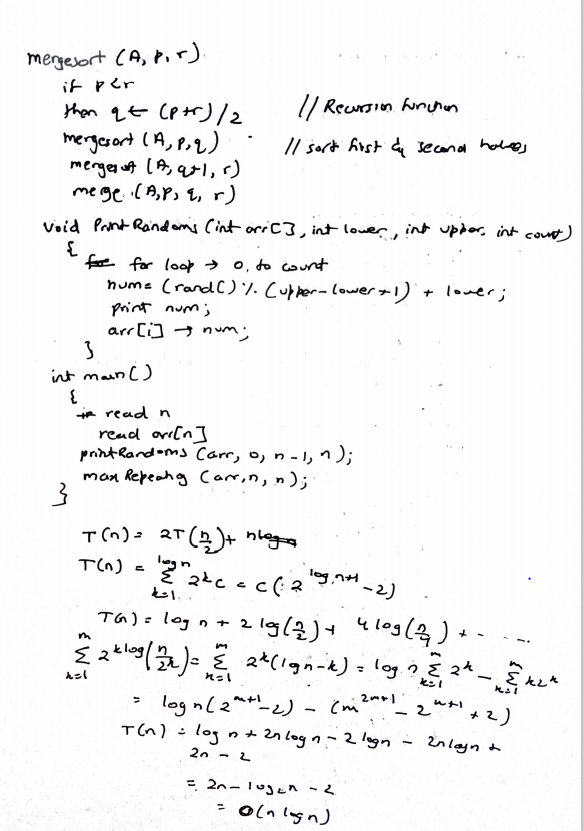 mergesort (A, p, r)
if p<r
then q ← (p+r)/2 // Recursion function
mergesort (A, p, q) // sort first & second halves
mergesort (A, q+1, r)
merge (A, p, q, r)
void PrintRandoms (int arr[], int lower, int upper, int count)
{
for for loop → 0, to count
num = (rand() % (upper-lower+1) + lower;
print num;
arr[i] → num;
}
int main()
{
in read n
read arr[n]
printRandoms (arr, 0, n-1, n);
maxRepeating (arr, n, n);
}
T(n) = 2T(n/2) + nlogn
T(n) = log n Σ k=1 2^k c = c(2^log n+1 - 2)
T(n) = log n + 2 log(n/2) + 4 log(n/4) + - - - -
m Σ k=1 2^k log(n/2^k) = m Σ k=1 2^k (lgn-k) = log n m Σ k=1 2^k - m Σ k=1 k2^k
= log n (2^m+1 - 2) - (m 2m+1 - 2^m+1 + 2)
T(n) = log n + 2n log n - 2 log n - 2n log n +
2n - 2
= 2n - log2n - 2
= O(n log n)